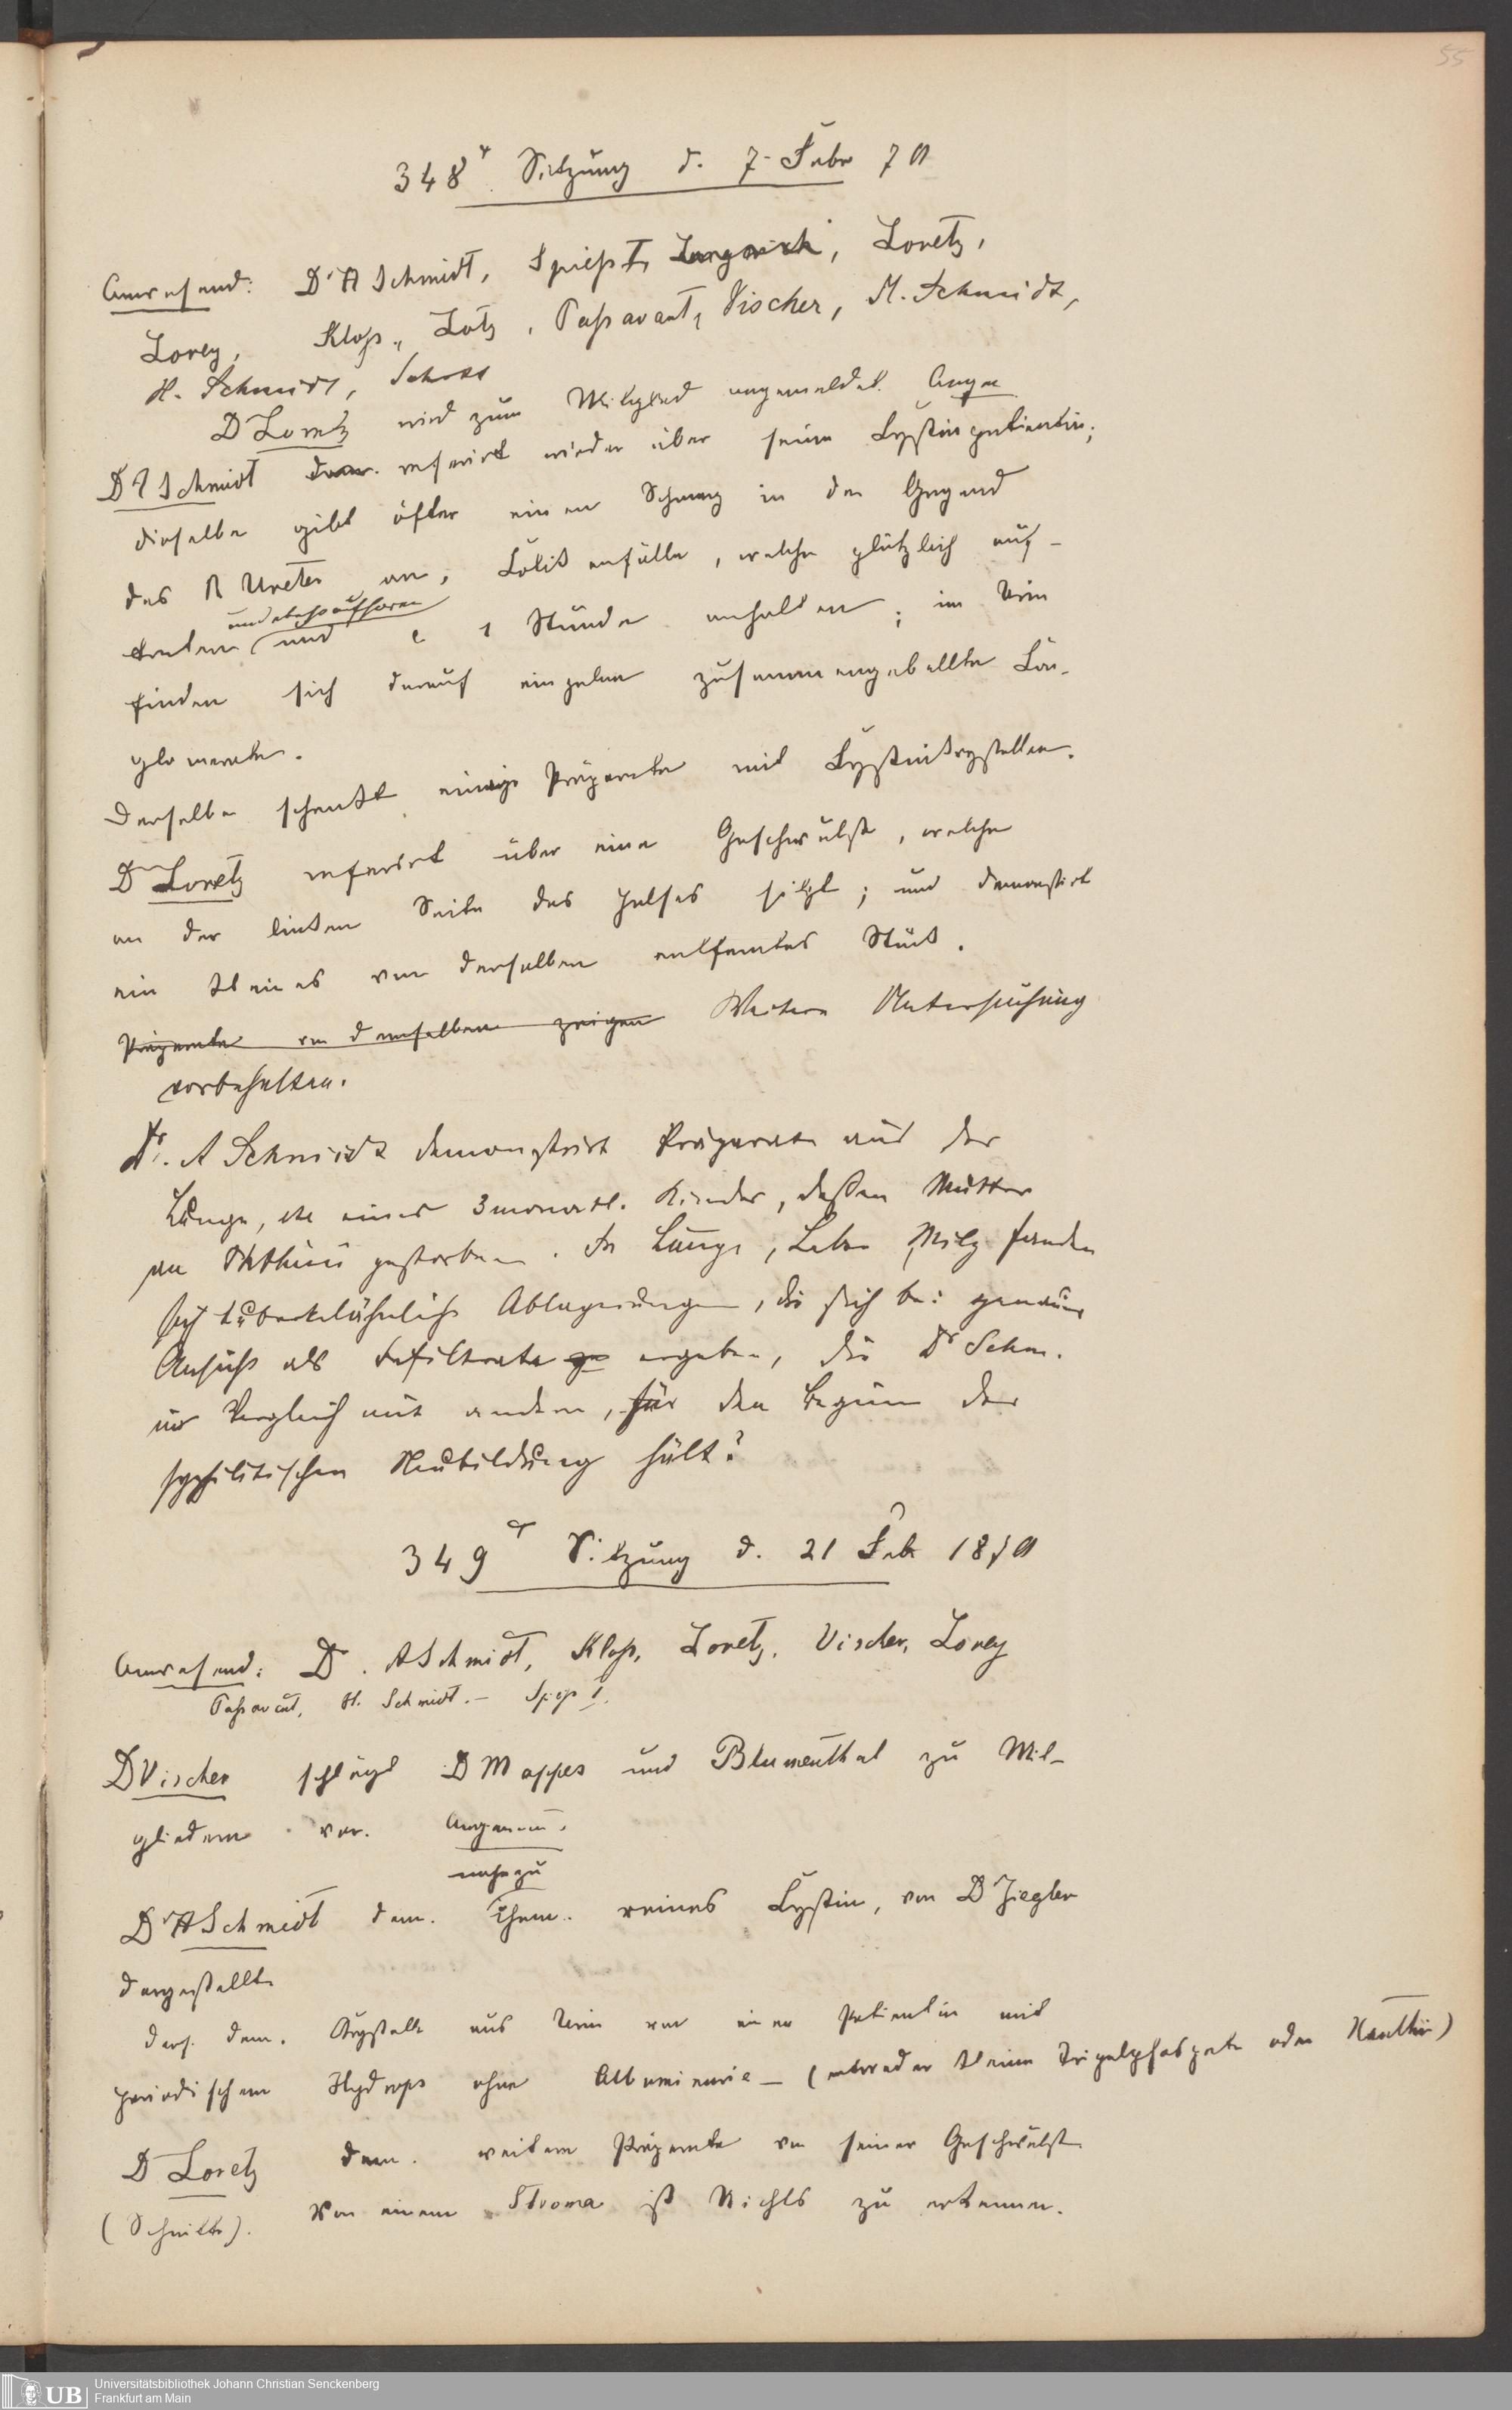 55
348r Sitzung d. 7. Febr 70
Anwesend: Dr A Schmidt, Spiess I, Loretz,
Lorey, Kloss, Lotz, Passavant, Vischer, M. Schmidt,
H. Schmidt, Schott
Dr Loretz wird zum Mitglied angemeldet. Angen
Dr A Schmidt referirt wieder über seine Cystinpatientin;
dieselbe gibt öfter einen Schmerz in der Gegend
des R Ureter an, Colikanfälle, welche plötzlich auf-
und ebenso aufhören
treten und c 1 Stunde anhalten; im Urin
finden sich darauf einzelne zusammengeballte Con-
glomerate.
Derselbe schenkt einige Präparate mit Cystinkrystallen.
Dr Loretz referirt über eine Geschwulst, welche
an der linken Seite des Halses sitzt; und demonstrirt
ein kleines von derselben entferntes Stück.
Präparate von demselben zeigen Weitere Untersuchung
vorbehalten.
Dr. A Schmidt demonstrirt Präparate aus der
Lunge, etc eines 3monatl. Kindes, dessen Mutter
an Phthisis gestorben. In Lunge, Leber, Milz fanden
sich tuberkelähnliche Ablagerungen, die sich bei genauer
Ansicht als Infiltrate ergeben, die Dr Schm.
im Vergleich mit andern, für den Beginn der
syphilitischen Neubildung hält?
349r Sitzung d. 21 Feb 1870
Anwesend: Dr. A Schmidt, Kloss, Loretz, Vischer, Lorey
Passavant, H. Schmidt. – Spiess I.
Dr Vischer schlägt Dr Mappes und Blumenthal zu Mit-
gliedern vor. Angenom.
nahezu
Dr A Schmidt dem. chem. reines Cystin, von Dr Ziegler
dargestellt
Ders. dem. Krystalle aus Urin von einer Patientin mit
periodischem Hydrops ohne Albuminurie – (entweder kleine Tripelphosphate oder Xanthin)
Dr Loretz dem. weitere Präparate von seiner Geschwulst
(Schnitte). Von einem Stroma ist Nichts zu erkennen.
UB
Universitätsbibliothek Johann Christian Senckenberg
Frankfurt am Main